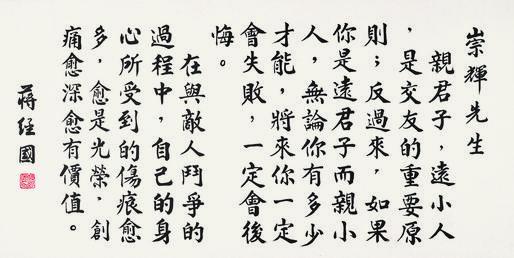 崇輝先生
親君子，遠小人
，是交友的重要原
則；反過來，如果
你是遠君子而親小
人，無論你有多少
才能，將來你一定
會失敗，一定會後
悔。
在與敵人鬥爭的
過程中，自己的身
心所受到的傷痕愈
多，愈是光榮，創
痛愈深愈有價值。
蔣經國